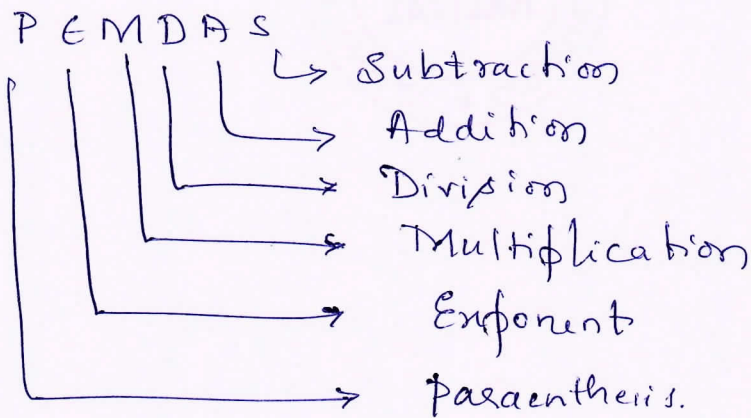 P E M D A S
Subtraction
Addition
Division
Multiplication
Exponent
Paraenthesis.